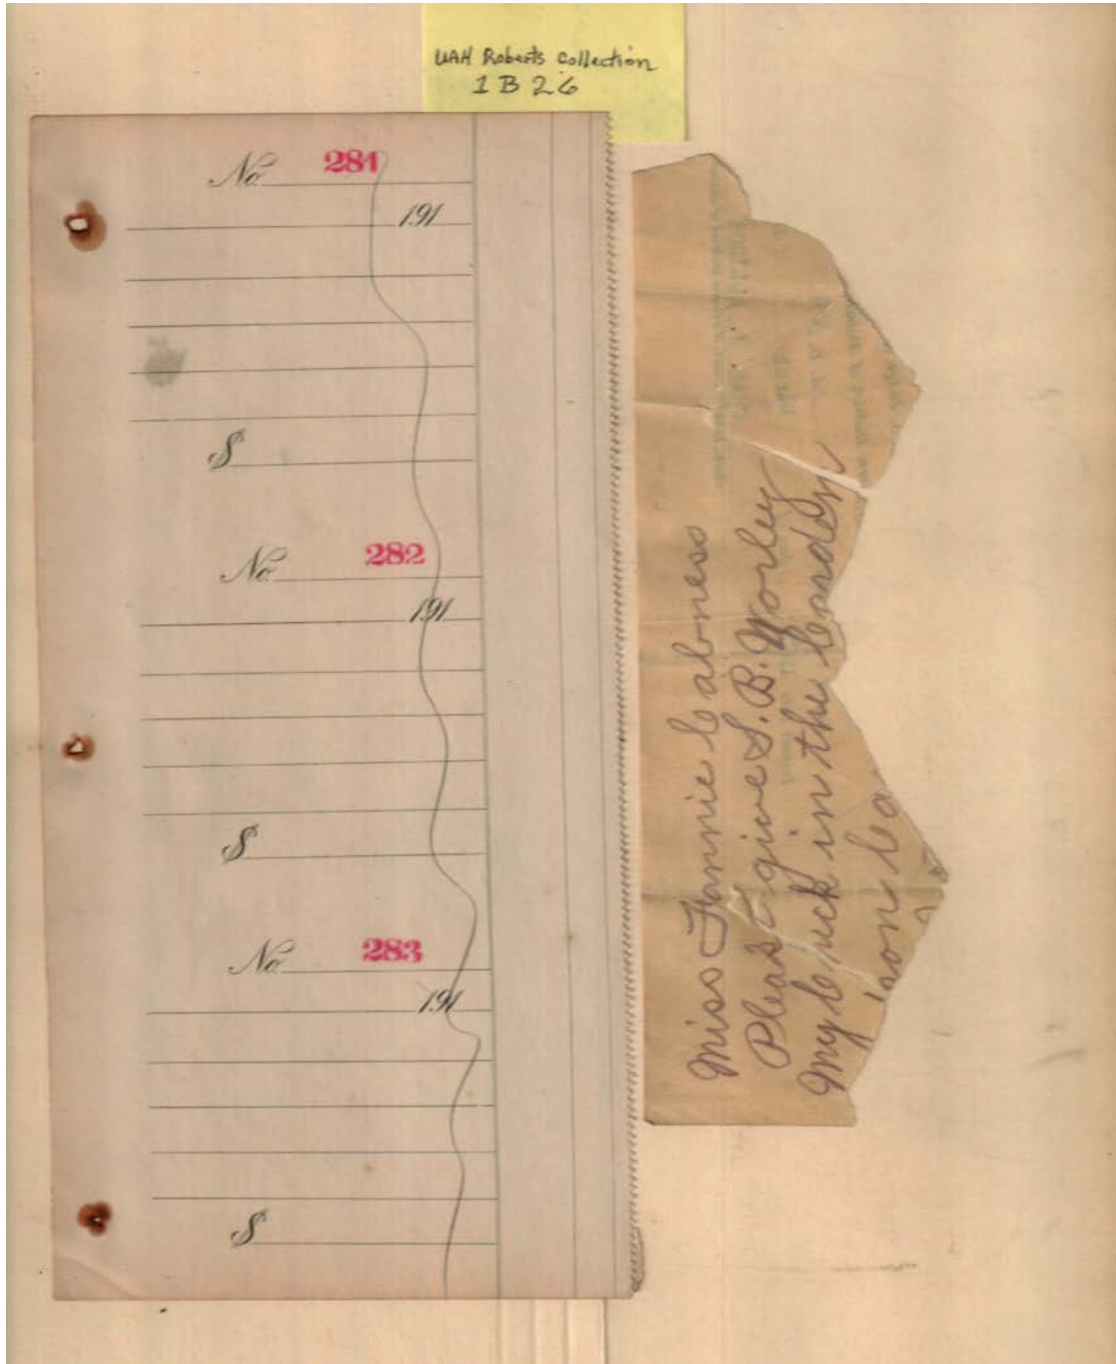 UAH Roberts Collection
1 B 26
No. 281
191
$
No. 282
191
$
No. 283
191
$
Miss Fannie Cabness
Please give S. B. Worley
My Cuck in the
Co